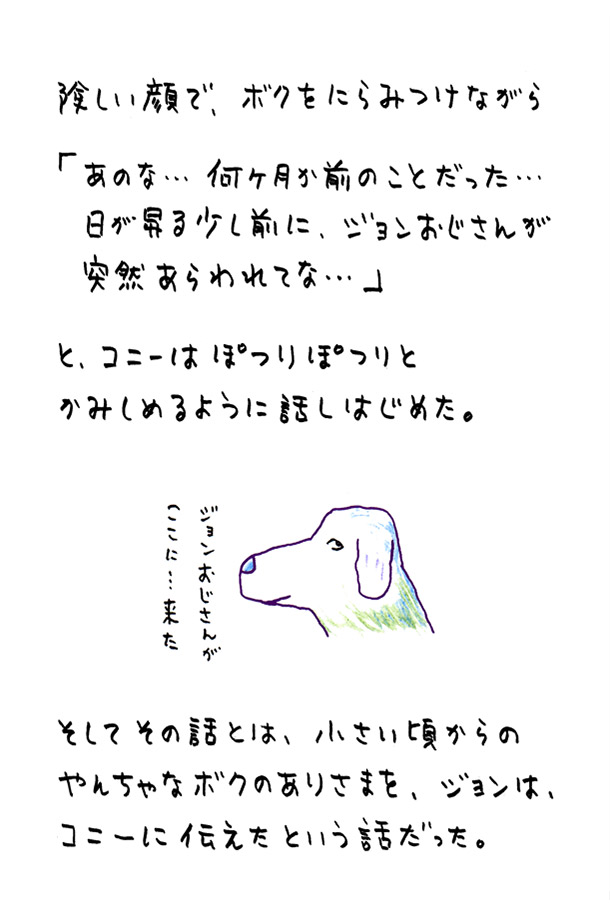 険しい顔で、ボクをにらみつけながら
「あのな… 何ヶ月か前のことだった…
日が昇る少し前に、ジョンおじさんが
突然あらわれてな…」
と、コニーは ぽつりぽつりと
かみしめるように話しはじめた。
ジョンおじさんが
ここに…来た
そして その話とは、小さい頃からの
やんちゃなボクのありさまを、ジョンは、
コニーに伝えたという話だった。